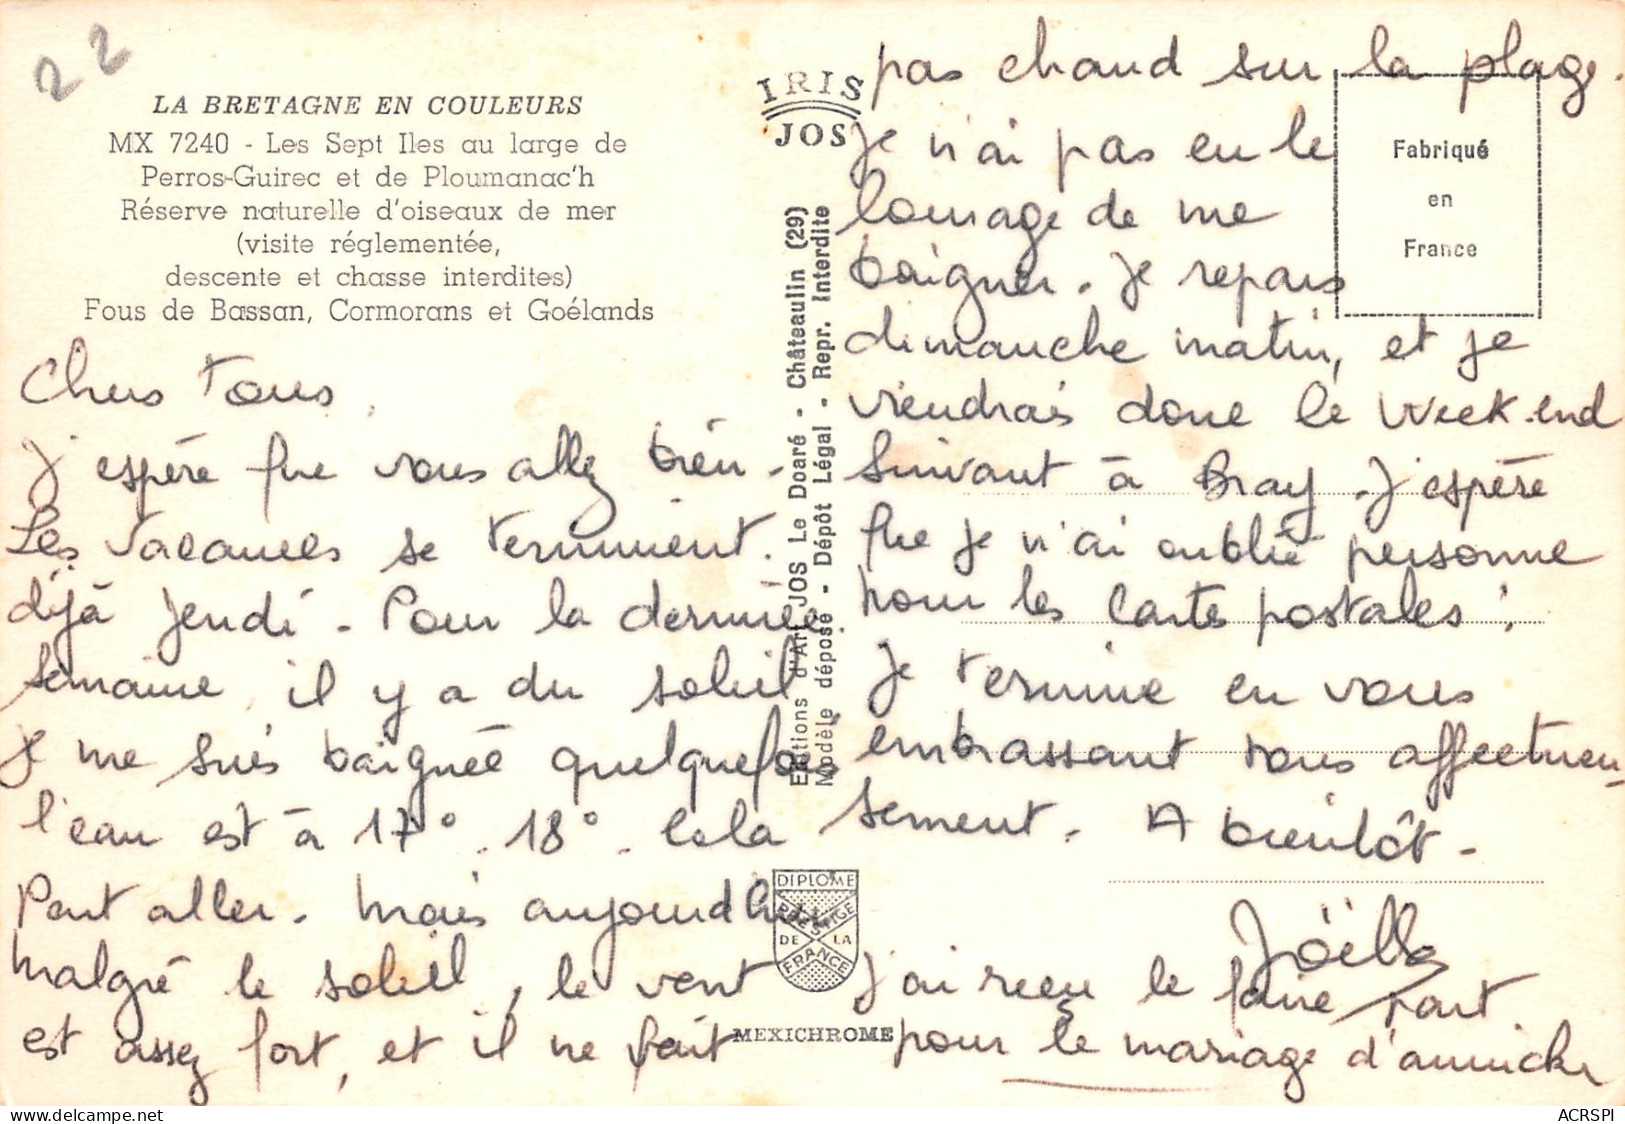 22
LA BRETAGNE EN COULEURS
MX 7240 - Les Sept Iles au large de
Perros-Guirec et de Ploumanac'h
Réserve naturelle d'oiseaux de mer
(visite réglementée,
descente et chasse interdites)
Fous de Bassan, Cormorans et Goélands
Chers Tous,
J'espère que vous allez bien.
Les vacances se terminent.
déjà jeudi. Pour la dernière
semaine, il y a du soleil
Je me suis baignée quelquefois
l'eau est à 17° . 18° . Cela
Peut aller. Mais aujourd'hui
malgré le soleil, le vent
est assez fort, et il ne fait
IRIS
JOS
Editions d'Art JOS Le Doaré - Châteaulin (29)
Modèle déposé - Dépôt Légal - Repr. Interdite
DIPLOME
PRESTIGE
DE LA
FRANCE
MEXICHROME
Fabriqué
en
France
pas chaud sur la plage.
Je n'ai pas eu le
courage de me
baigner. Je repars
dimanche matin, et je
viendrais donc le week.end
suivant à Bray. J'espère
que je n'ai oublié personne
pour les cartes postales ;
Je termine en vous
embrassant tous affectueu-
sement. A bientôt.
Joëlle
J'ai reçu le faire part
pour le mariage d'annick
ACRSPI